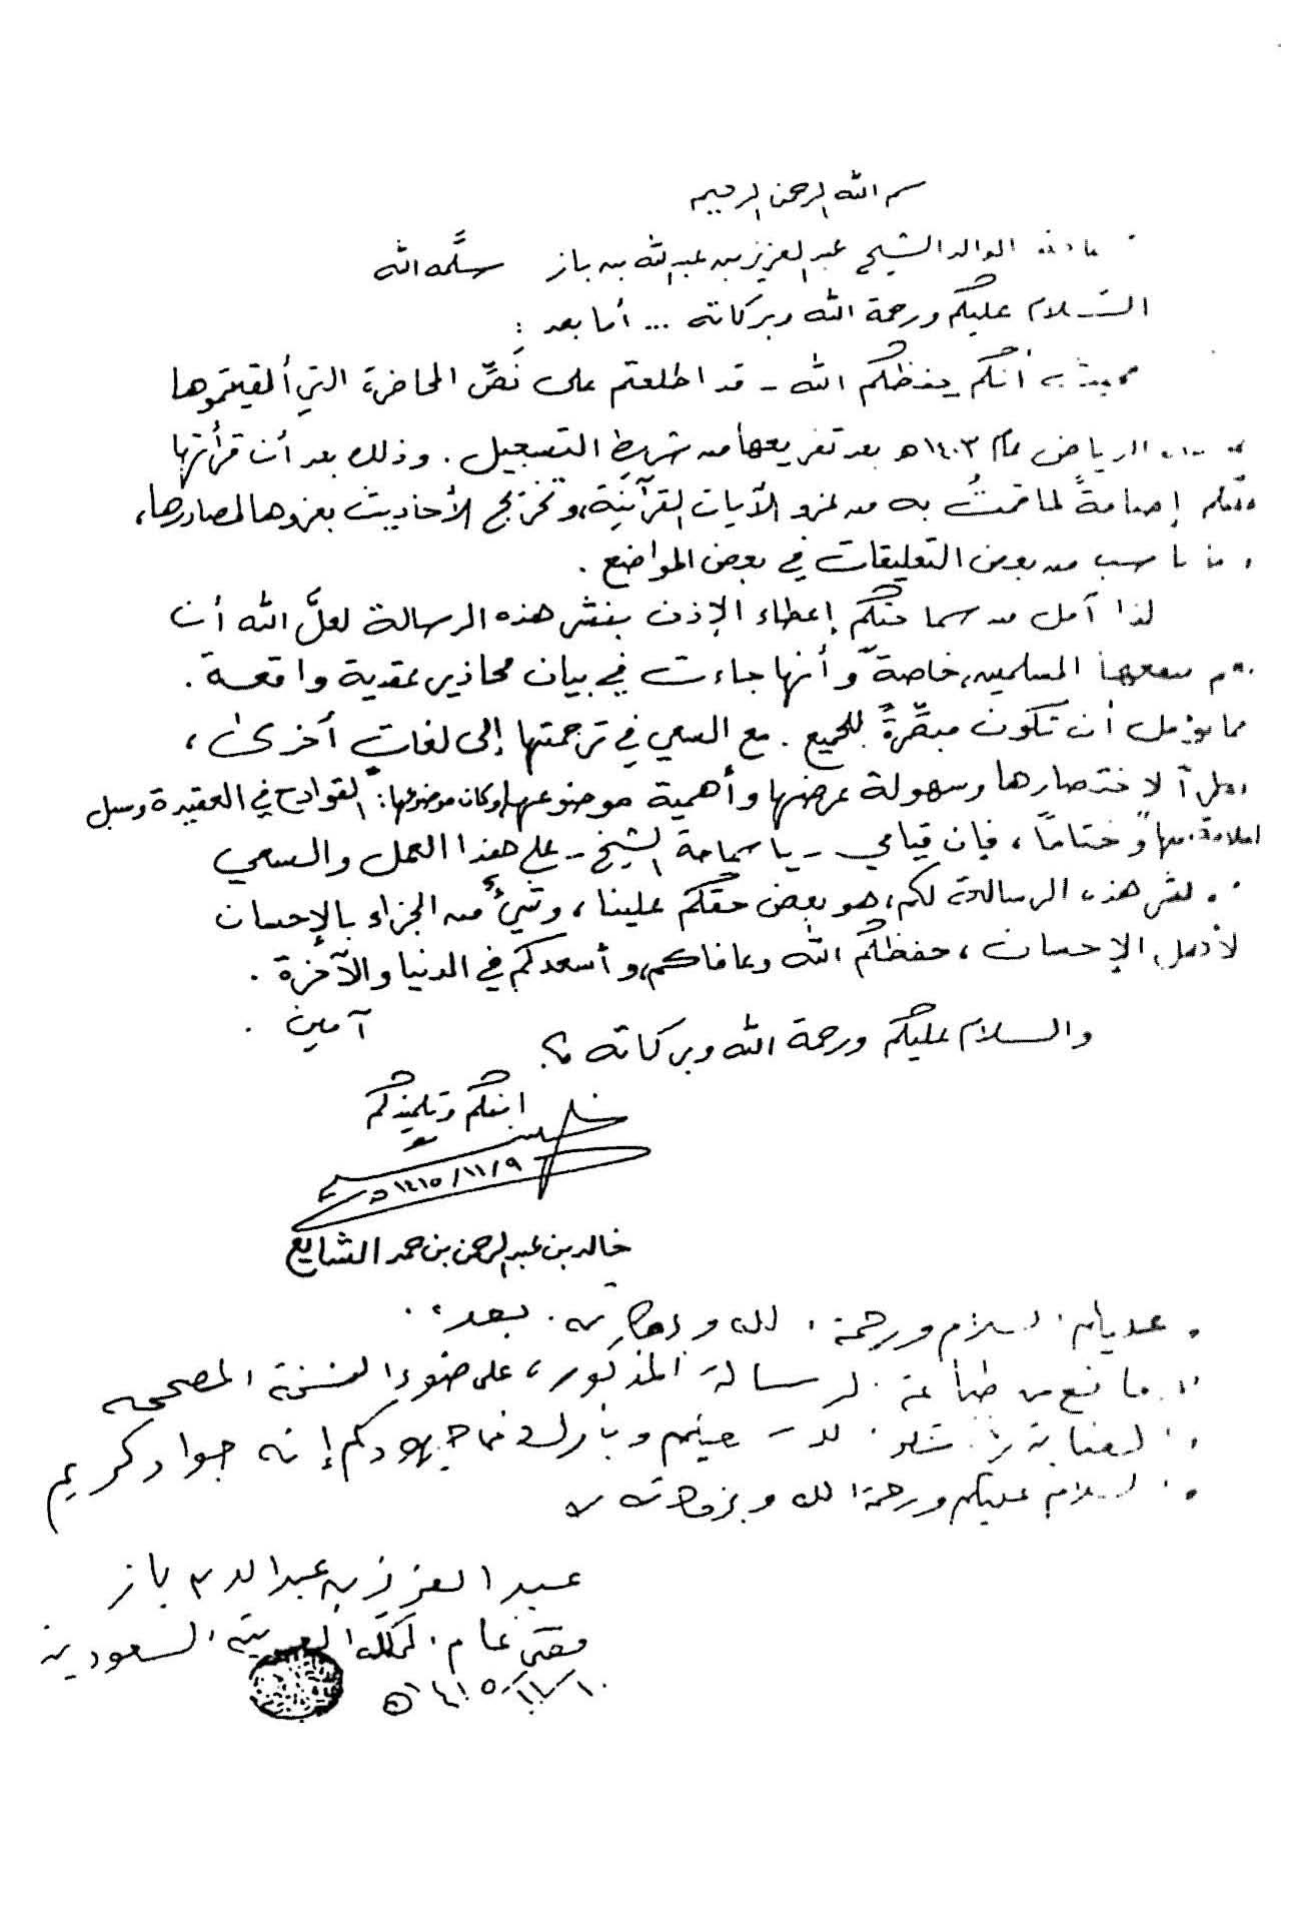 بسم الله الرحمن الرحيم
الوالد الشيخ عبد العزيز بن عبد الله بن باز سلَّمه الله
السَّلام عليكم ورحمة الله وبركاته ... أما بعد :
أنكم يحفظكم الله - قد اطلعتم على نَصِّ المحاضرة التي ألقيتموها
الرياض عام ١٤٠٣ هـ بعد تفريغها من شريط التسجيل . وذلك بعد أن قرأتها
عليكم إضافةً لما قمتُ به من عزو الآيات القرآنيَّة، وتخريج الأحاديث بعزوها لمصادرها،
وما ناسب من بعض التعليقات في بعض المواضع .
لذا آمل من سماحتكم إعطاء الإذن بنشر هذه الرسالة لعلَّ الله أن
ينفع بها المسلمين، خاصةً وأنها جاءت في بيان محاذير عقدية واقعة .
مما يؤمل أن تكون مبصِّرةً للجميع . مع السعي في ترجمتها إلى لغات أخرى ،
نظراً لاختصارها وسهولة عرضها وأهمية موضوعها، وكان موضوعها: "القوادح في العقيدة وسبل
السلامة منها" وختاماً ، فإن قيامي - يا سماحة الشيخ - على هذا العمل والسعي
لنشر هذه الرسالة لكم، هو بعض حقكم علينا ، وشيءٌ من الجزاء بالإحسان
لأهل الإحسان ، حفظكم الله وعافاكم، وأسعدكم في الدنيا والآخرة .
آمين .
والسلام عليكم ورحمة الله وبركاته ؟.
ابنكم وتلميذكم
١٤١٥/١١/٩ هـ
خالد بن عبد الرحمن بن حمد الشايع
وعليكم السلام ورحمة الله وبركاته . بعد ..
لا مانع من طباعة الرسالة المذكورة ، على ضوء النسخة المصححة
والعناية الله يعينكم ويبارك في جهودكم إنه جواد كريم
والسلام عليكم ورحمة الله وبركاته
عبد العزيز بن عبد الله بن باز
مفتي عام المملكة العربية السعودية
١٤١٥/١١/١٠ هـ